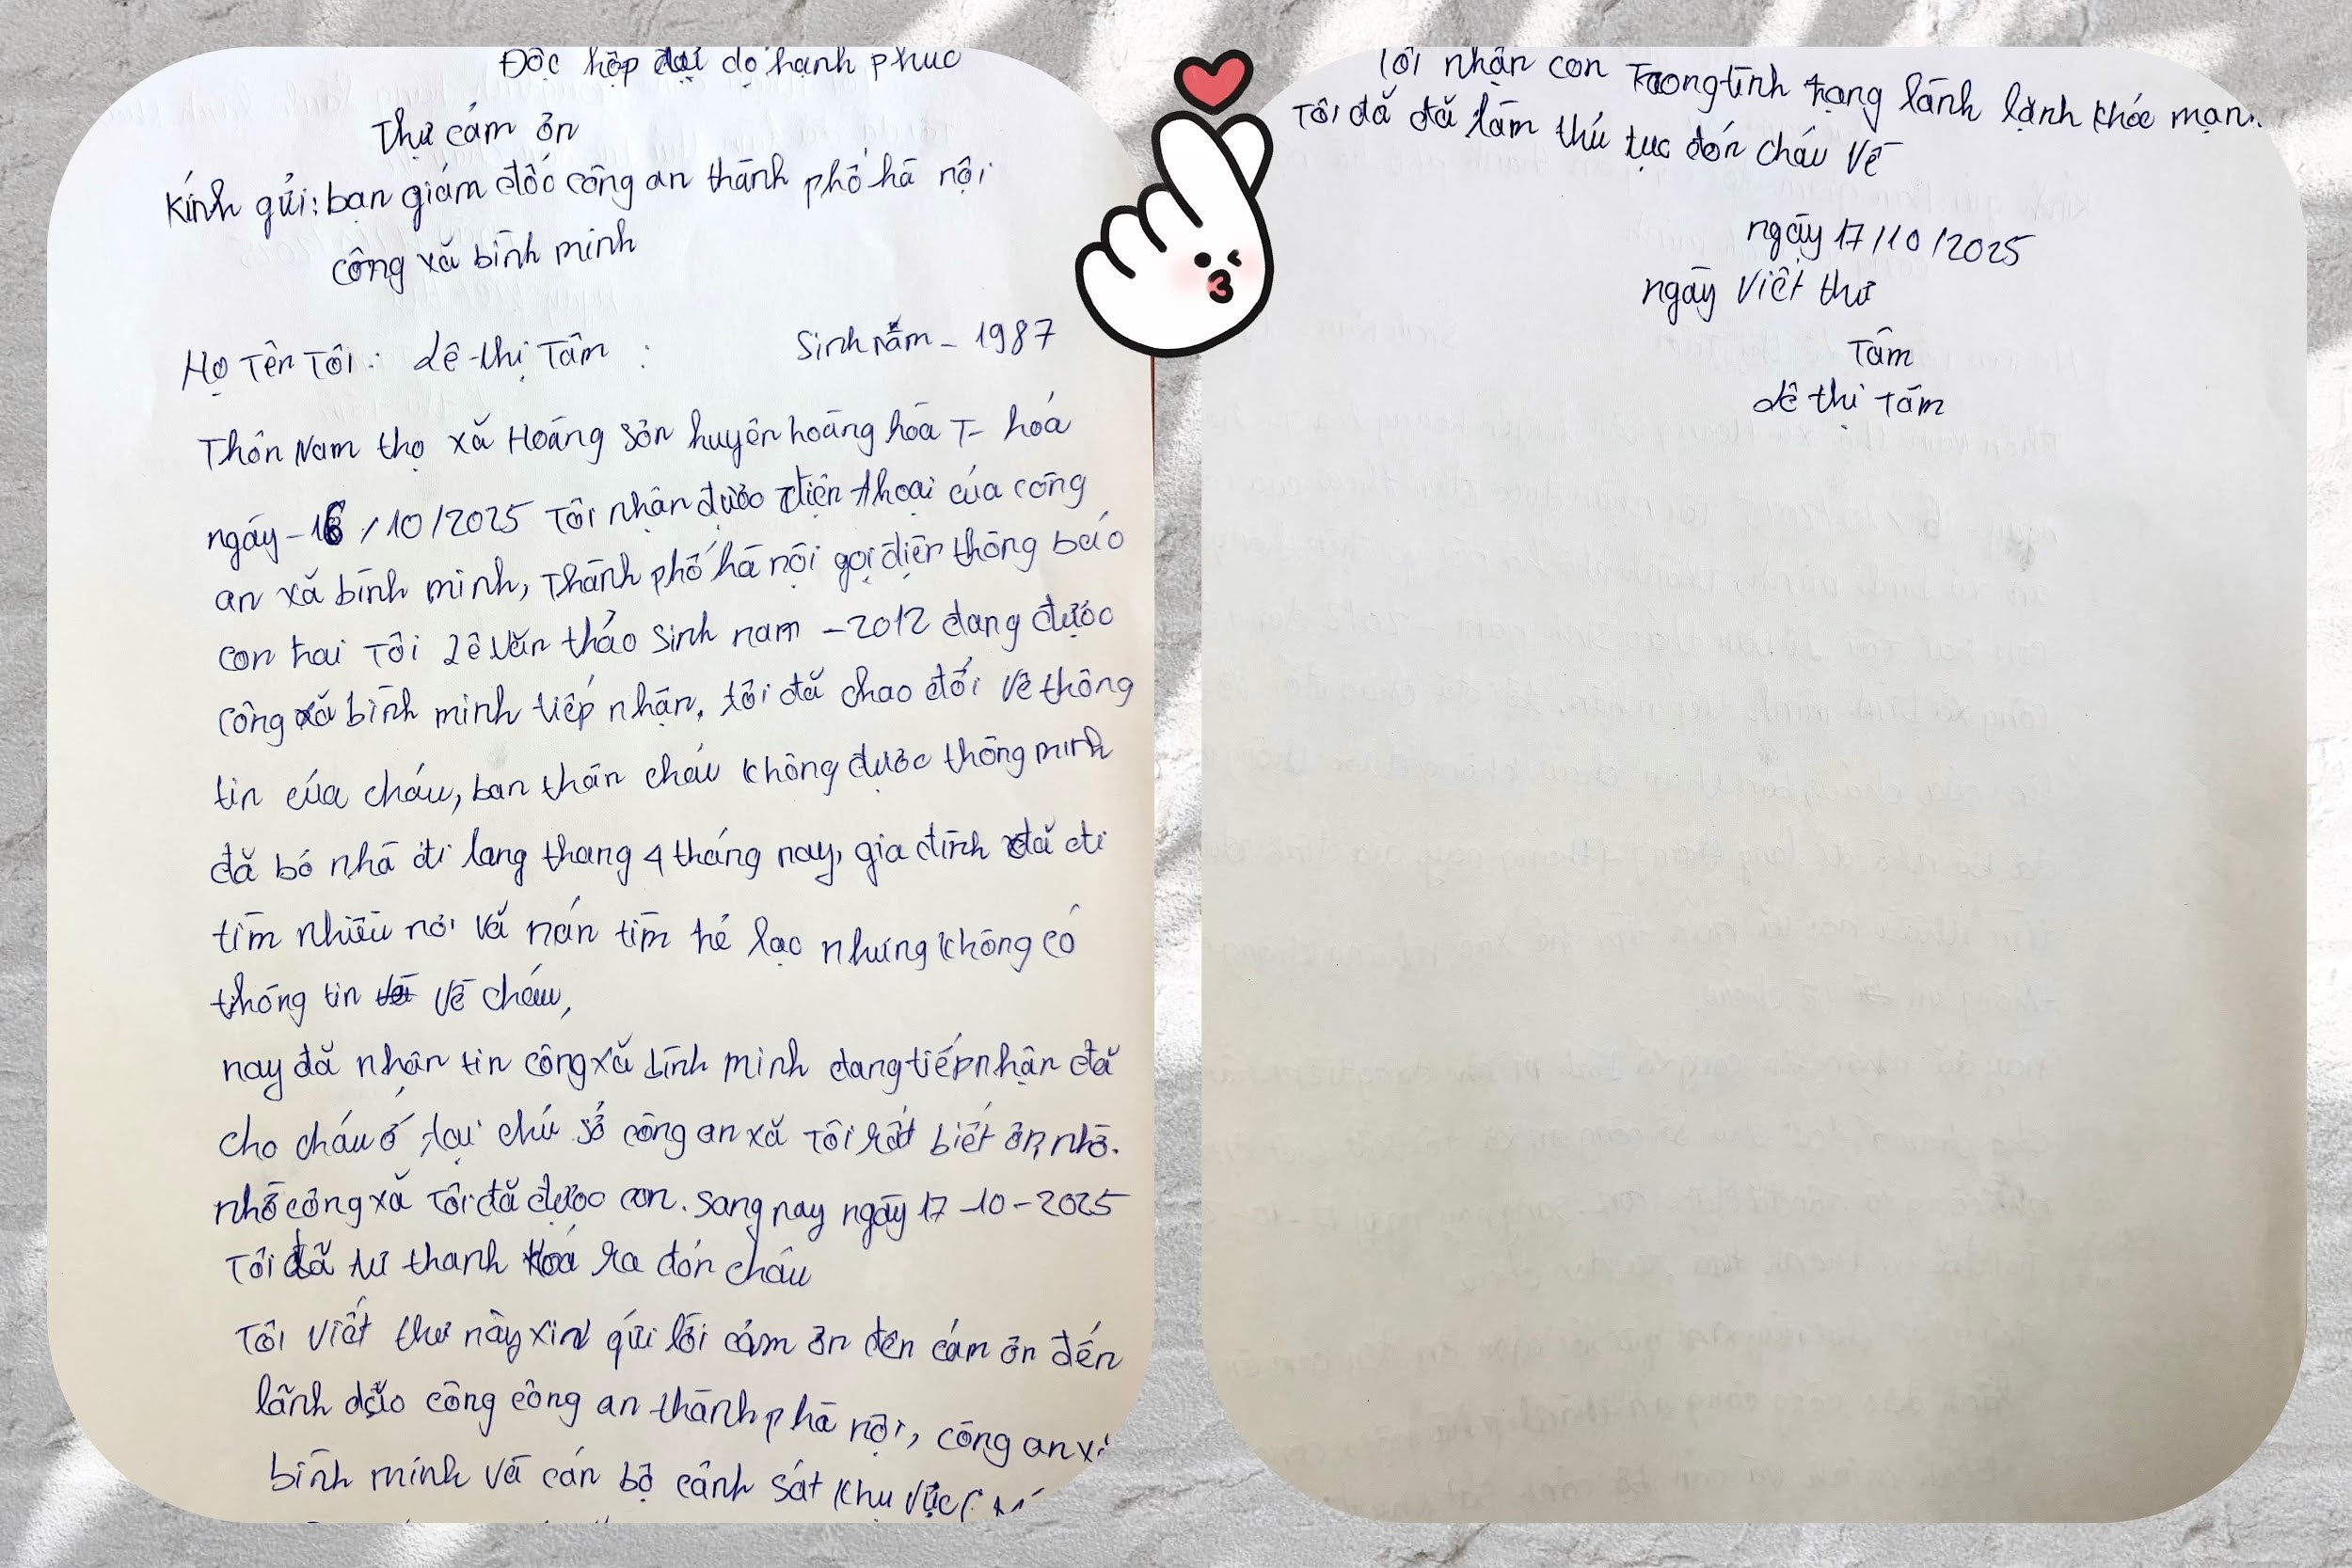 Độc hộp dại dọ hạnh phuc
Thư cảm ơn
Kính gửi: bạn giám đốc công an thành phố hà nội
công xã bình minh
Họ Tên Tôi: Lê thị Tâm : Sinh năm - 1987
Thôn Nam thọ xã Hoàng Sơn huyện hoàng hóa T- hóa
ngày - 16/10/2025 Tôi nhận được điện thoại của công
an xã bình minh, Thành phố hà nội gọi điện thông báo
con trai Tôi Lê Văn thảo Sinh nam - 2012 đang được
công xã bình minh tiếp nhận, tôi đã chao đổi về thông
tin của cháu, ban thân cháu không được thông minh
đã bỏ nhà đi lang thang 4 tháng nay, gia đình đã đi
tìm nhiều nơi và nán tìm trẻ lạc nhưng không có
thông tin về cháu,
nay đã nhận tin công xã bình minh đang tiếp nhận đã
cho cháu ở tại chú sở công an xã Tôi rất biết ơn, nhờ.
nhờ công xã Tôi đã được con. sang nay ngày 17-10-2025
Tôi đã từ thanh Hoá ra đón cháu
Tôi viết thư này xin gửi lời cảm ơn đến cảm ơn đến
lãnh đạo công công an thành phà nội, công an xã
bình minh và cán bộ cảnh sát khu vực
Tôi nhận con Trong tình trạng lành lặnh khỏe mạn
Tôi đã đã làm thủ tục đón cháu về
ngày 17/10/2025
ngày viết thư
Tâm
Lê thị Tâm